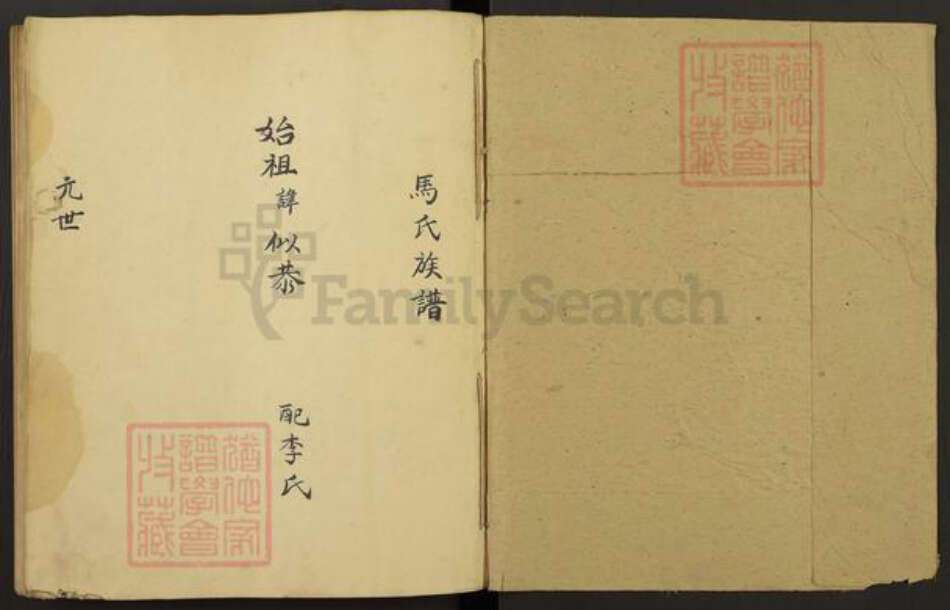 馬氏族譜
始祖諱似恭 配李氏
元世
猶他家譜學會收藏
猶他家譜學會收藏
FamilySearch